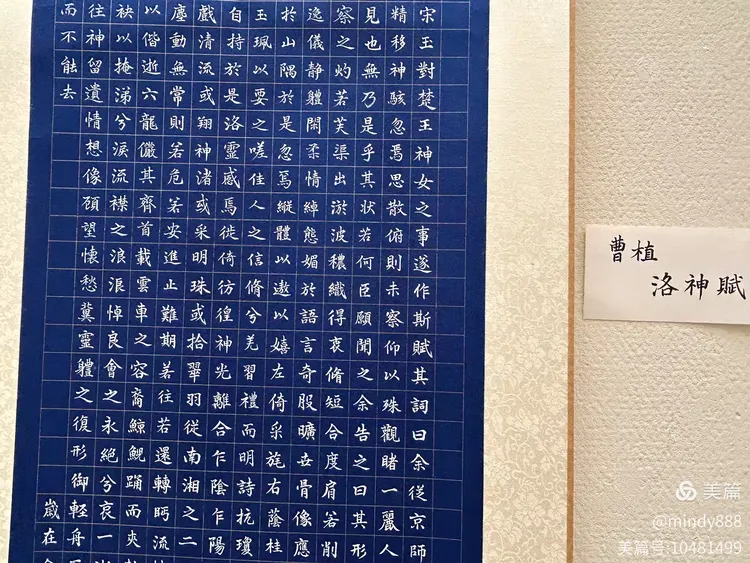 宋玉對楚王神女之事遂作斯賦其詞曰余從京師
精移神駭忽焉思散俯則未察仰以殊觀睹一麗人
見也無乃是乎其狀若何臣願聞之余告之曰其形
察之灼若芙渠出淤波穠纖得衷脩短合度肩若削
逸儀静軆閑柔情綽態媚於語言奇服曠世骨像應
於山隅於是忽焉縱體以遨以嬉左倚采旄右蔭桂
玉珮以要之嗟佳人之信脩兮羌習禮而明詩抗瓊
自持於是洛靈感焉徙倚彷徨神光離合乍陰乍陽
戲清流或翔神渚或采明珠或拾翠羽從南湘之二
塵動無常則若危若安進止難期若往若還轉眄流
以偕逝六龍儼其齊首載雲車之容裔鯨鯢踊而夾
袂以掩涕兮淚流襟之浪浪悼良會之永絕兮哀一
往神留遺情想像顧望懷愁冀靈軆之復形御輕舟
而不能去
歲在
曹植
洛神賦
美篇
@mindy888
美篇号:10481499